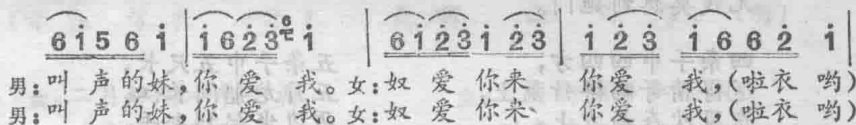 6 i 5 6 i | i 6 2 3 6 i | 6 i 2 3 i 2 3 | i 2 3 i 6 6 2 i
男:叫声的妹,你爱我。女:奴爱你来你爱我,(啦衣哟)
男:叫声的妹,你爱我。女:奴爱你来、你爱我,(啦衣哟)